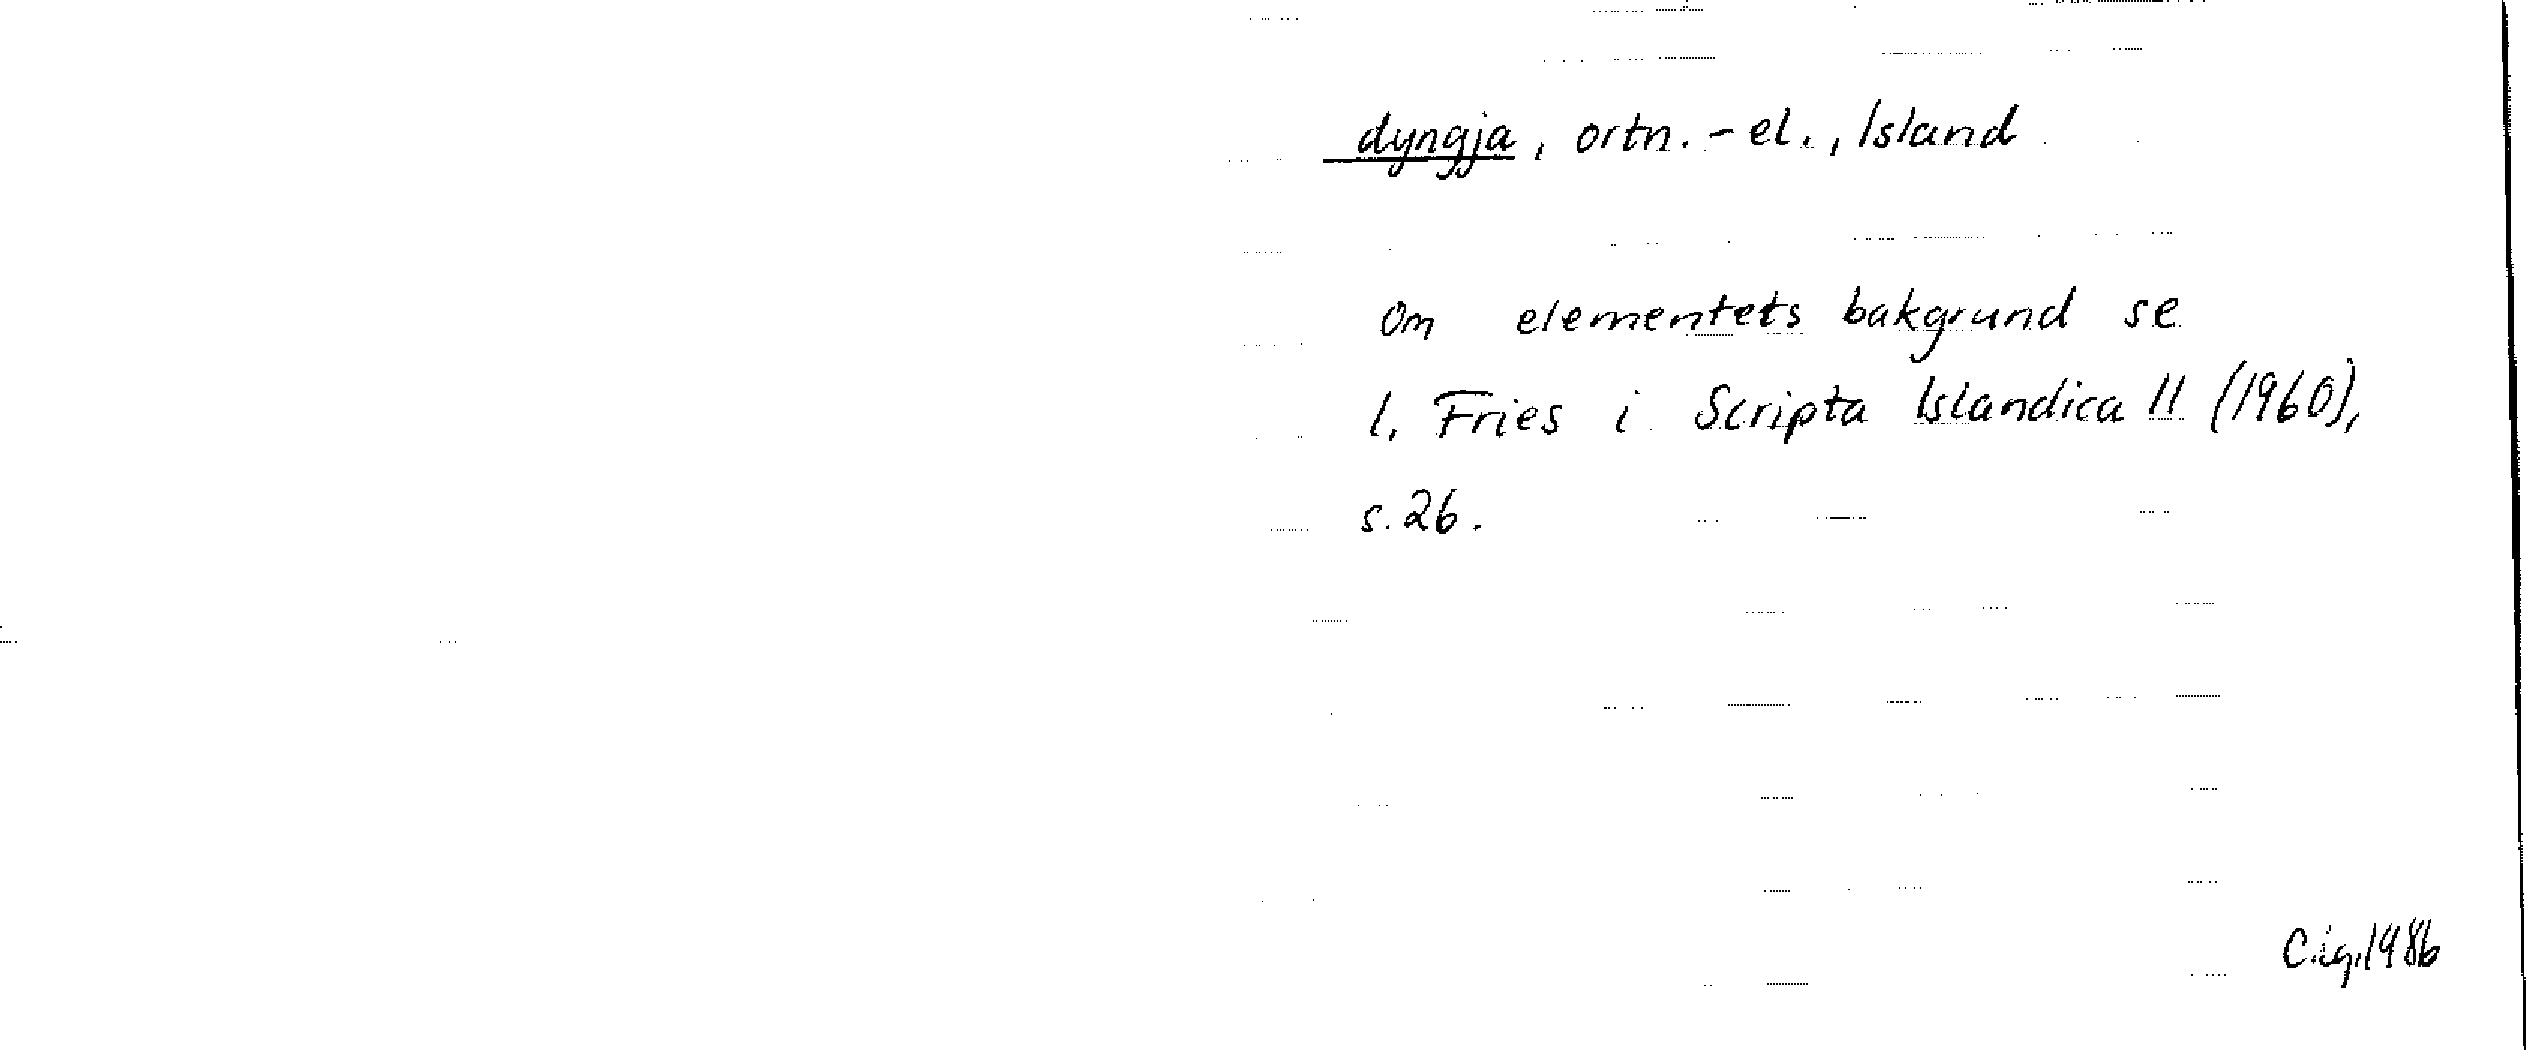 dyngja, ortn.-el., Island
Om elementets bakgrund se
I. Fries i Scripta Islandica 11 (1960),
s. 26.
C.ig.1986